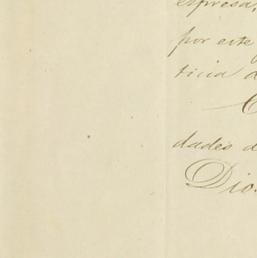 espresa,
por este
ticia
dades d
Dios